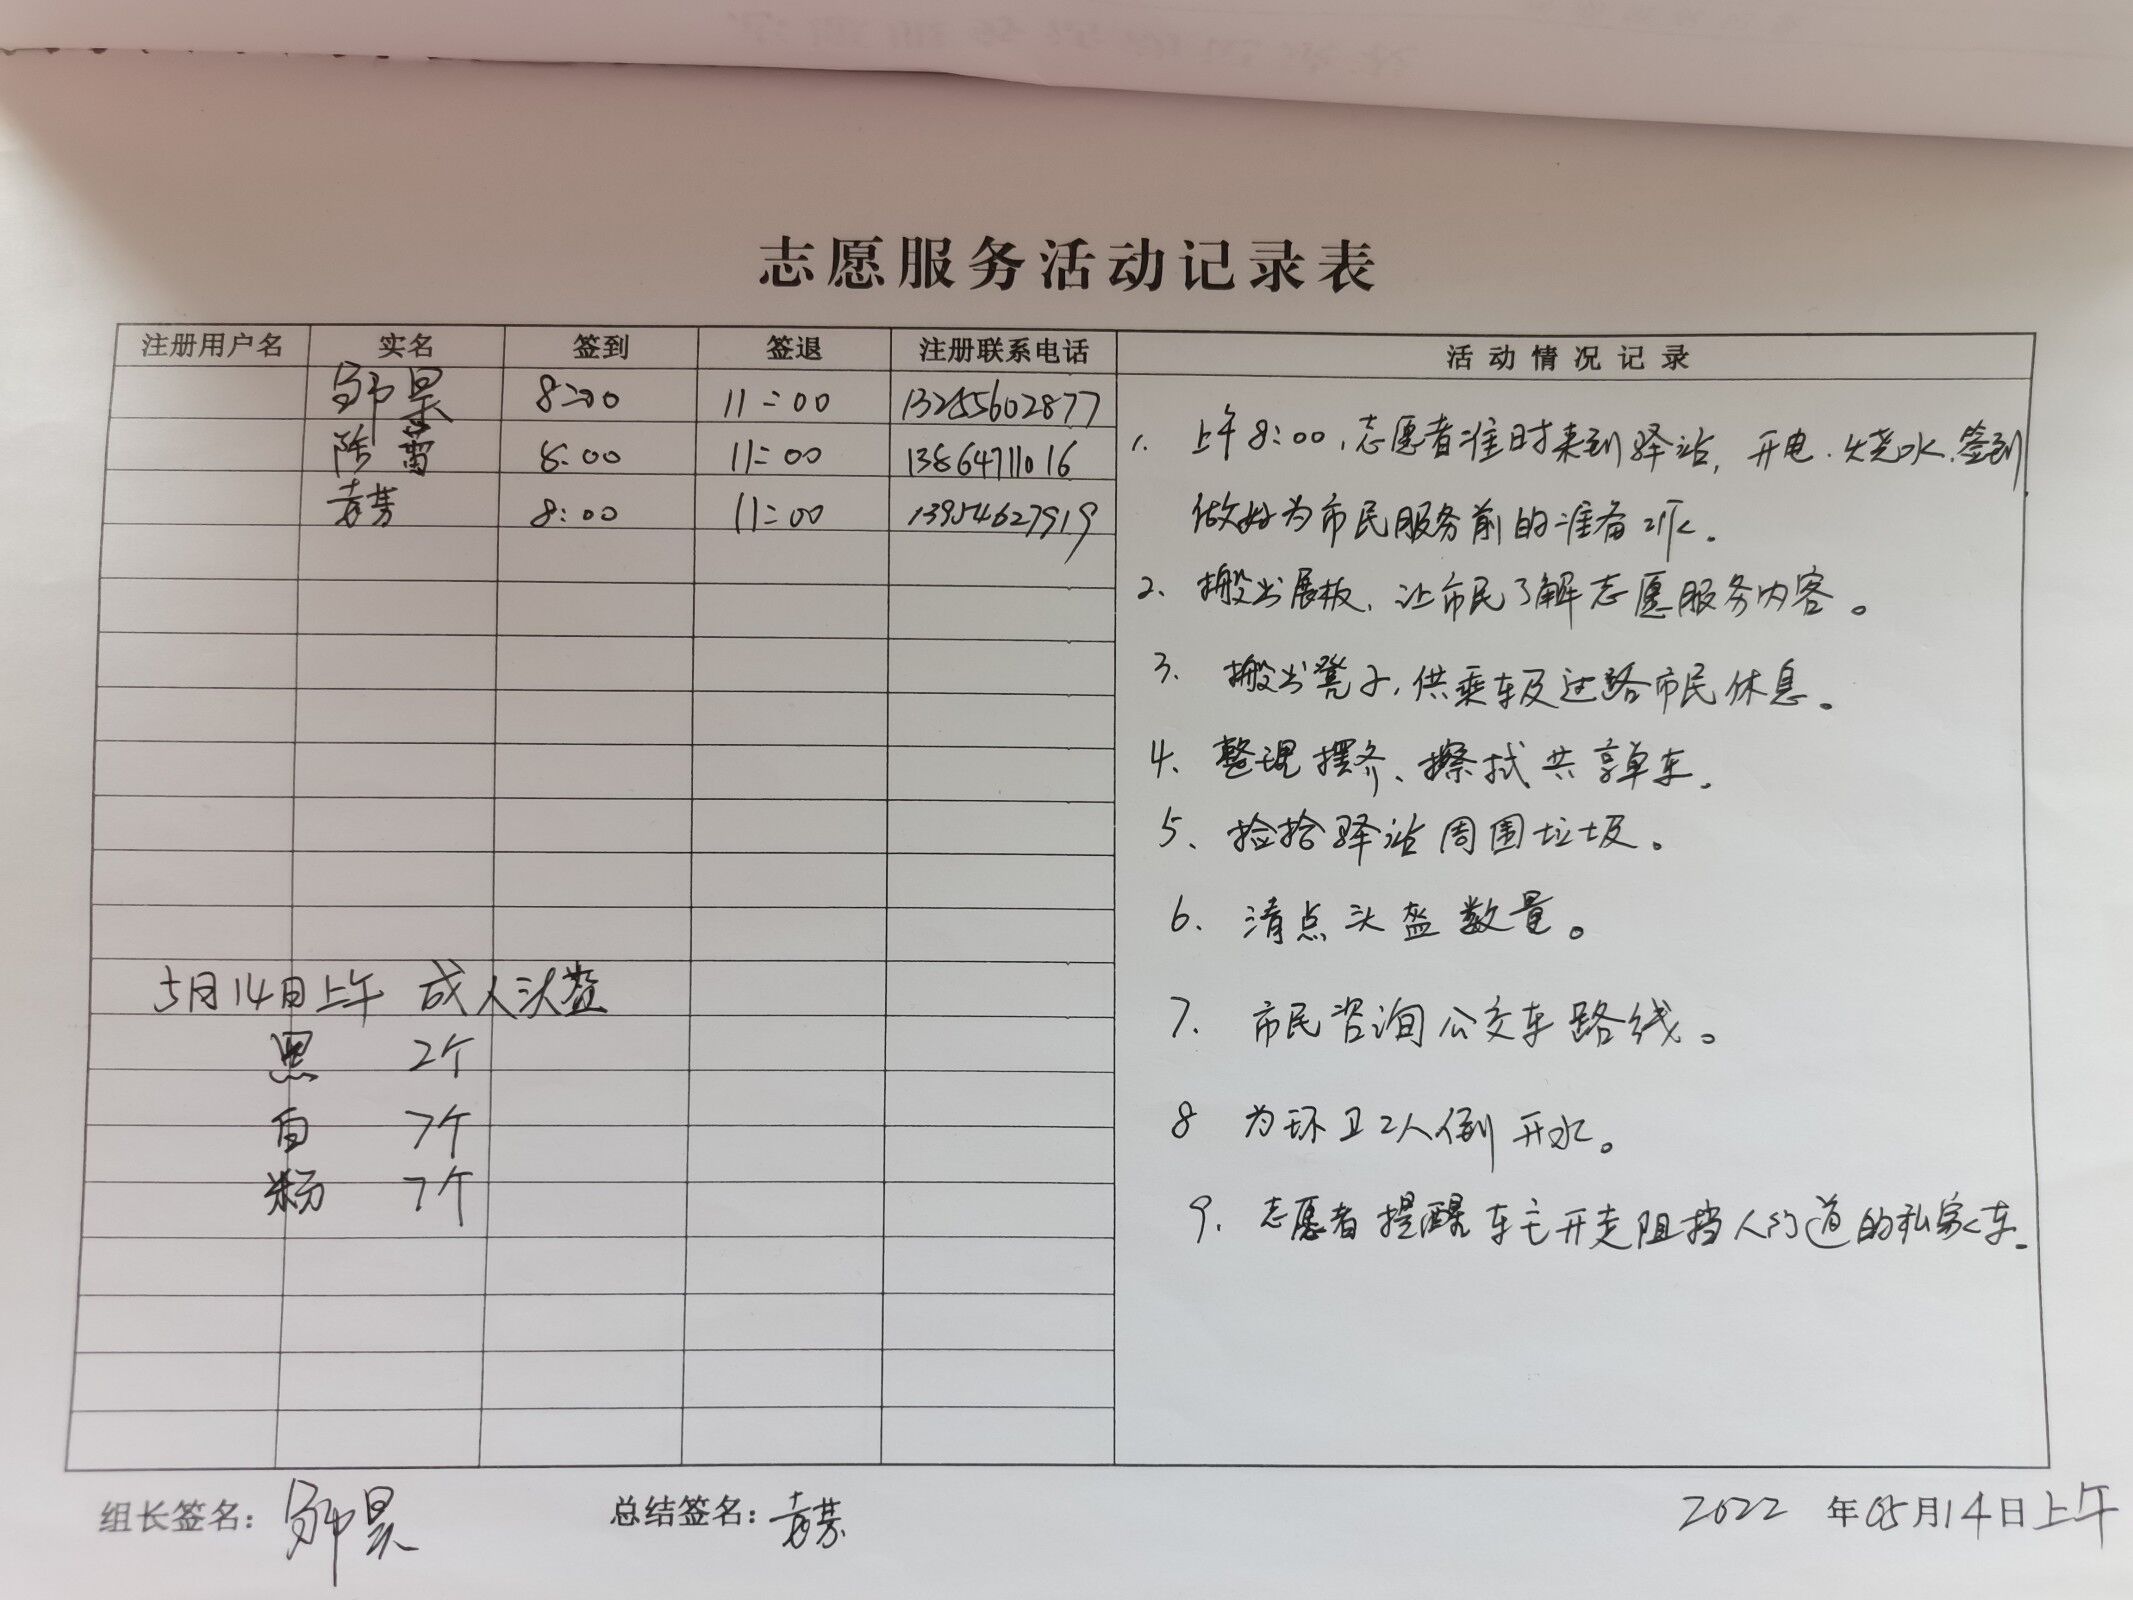 志愿服务活动记录表
注册用户名 实名 签到 签退 注册联系电话 活动情况记录
8:00 11:00 13255602877
陈雷 8:00 11:00 13864711016
8:00 11:00 13954627919
1. 上午8:00,志愿者准时来到驿站,开电、烧水、签到,
做好为市民服务前的准备工作.
2、搬出展板、让市民了解志愿服务内容。
3、搬出凳子,供乘车及过路市民休息。
4、整理摆齐、擦拭共享单车.
5、捡拾驿站周围垃圾。
6、清点头盔数量。
7、市民咨询公交车路线。
8 为环卫工人倒开水。
9、志愿者提醒车主开走阻挡人行道的私家车.
5月14日上午 成人头盔
黑 2个
白 7个
粉 7个
组长签名: 总结签名:
2022年05月14日上午